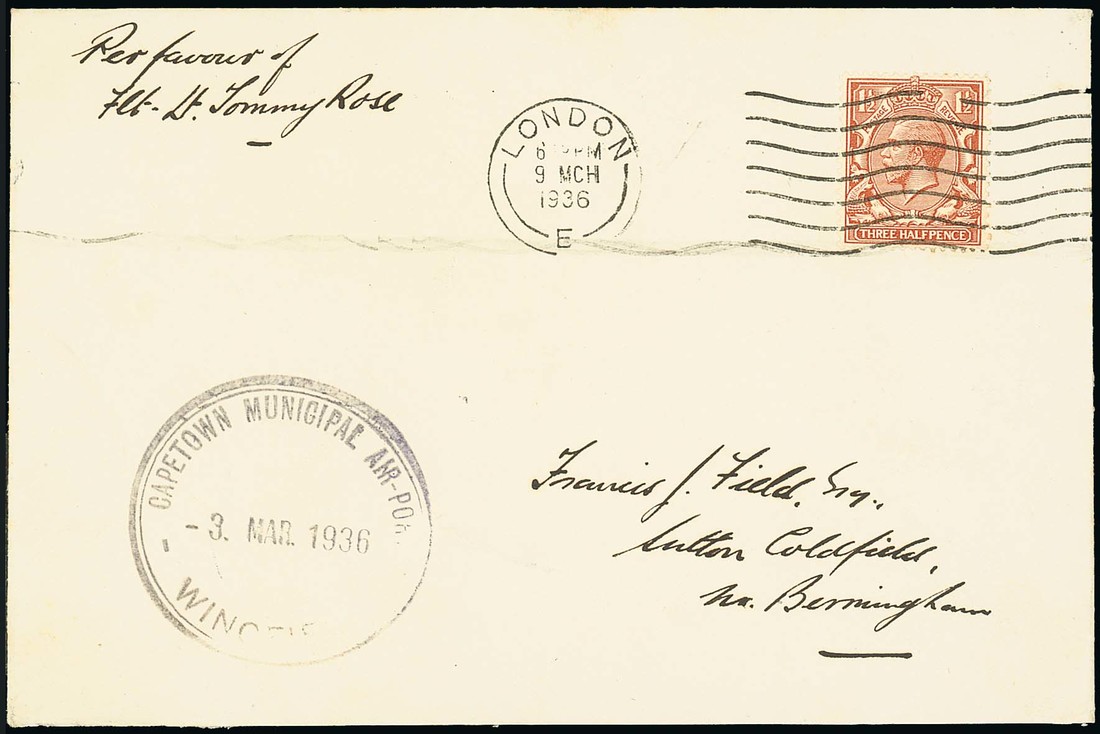 Per favour of
Flt-Lt. Tommy Rose
LONDON
PM
9 MCH
1936
E
1½ 1½
POSTAGE REVENUE
THREE HALFPENCE
CAPETOWN MUNICIPAL AIR-POR
-3. MAR. 1936
Francis J. Field, Esq.,
Sutton Coldfield,
Nr. Bermingham